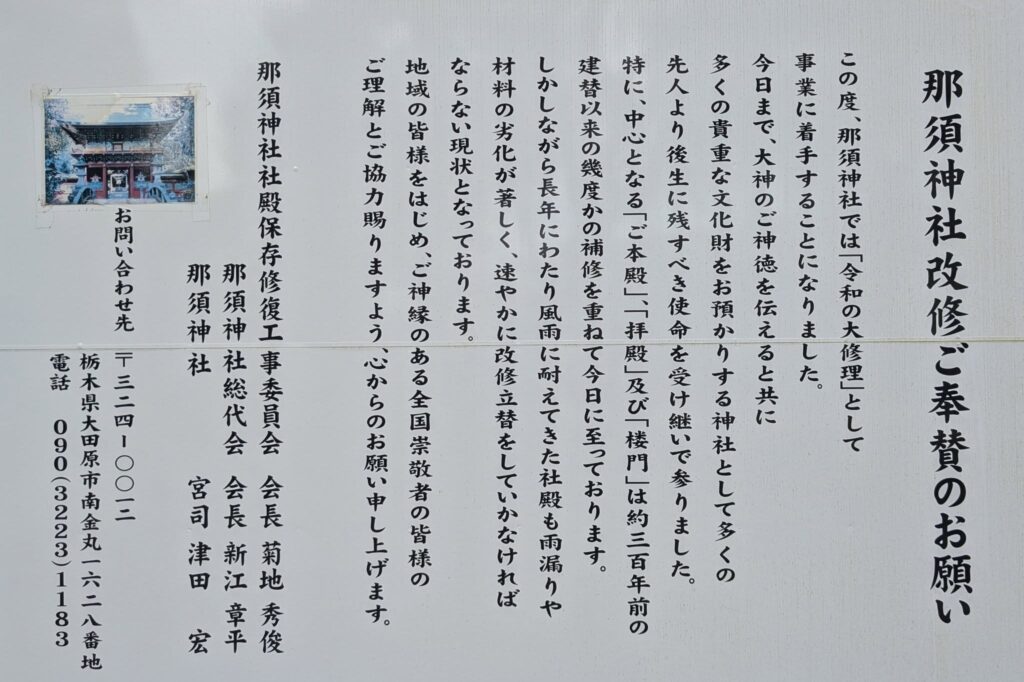 那須神社改修ご奉賛のお願い
この度、那須神社では「令和の大修理」として
事業に着手することになりました。
今日まで、大神のご神徳を伝えると共に
多くの貴重な文化財をお預かりする神社として多くの
先人より後生に残すべき使命を受け継いで参りました。
特に、中心となる「ご本殿」、「拝殿」及び「楼門」は約三百年前の
建替以来の幾度かの補修を重ねて今日に至っております。
しかしながら長年にわたり風雨に耐えてきた社殿も雨漏りや
材料の劣化が著しく、速やかに改修立替をしていかなければ
ならない現状となっております。
地域の皆様をはじめ、ご神縁のある全国崇敬者の皆様の
ご理解とご協力賜りますよう、心からのお願い申し上げます。
那須神社社殿保存修復工事委員会 会長 菊地 秀俊
那須神社総代会 会長 新江 章平
那須神社 宮司 津田 宏
お問い合わせ先
〒三二四ー〇〇一二
栃木県大田原市南金丸一六二八番地
電話 090(3223)1183